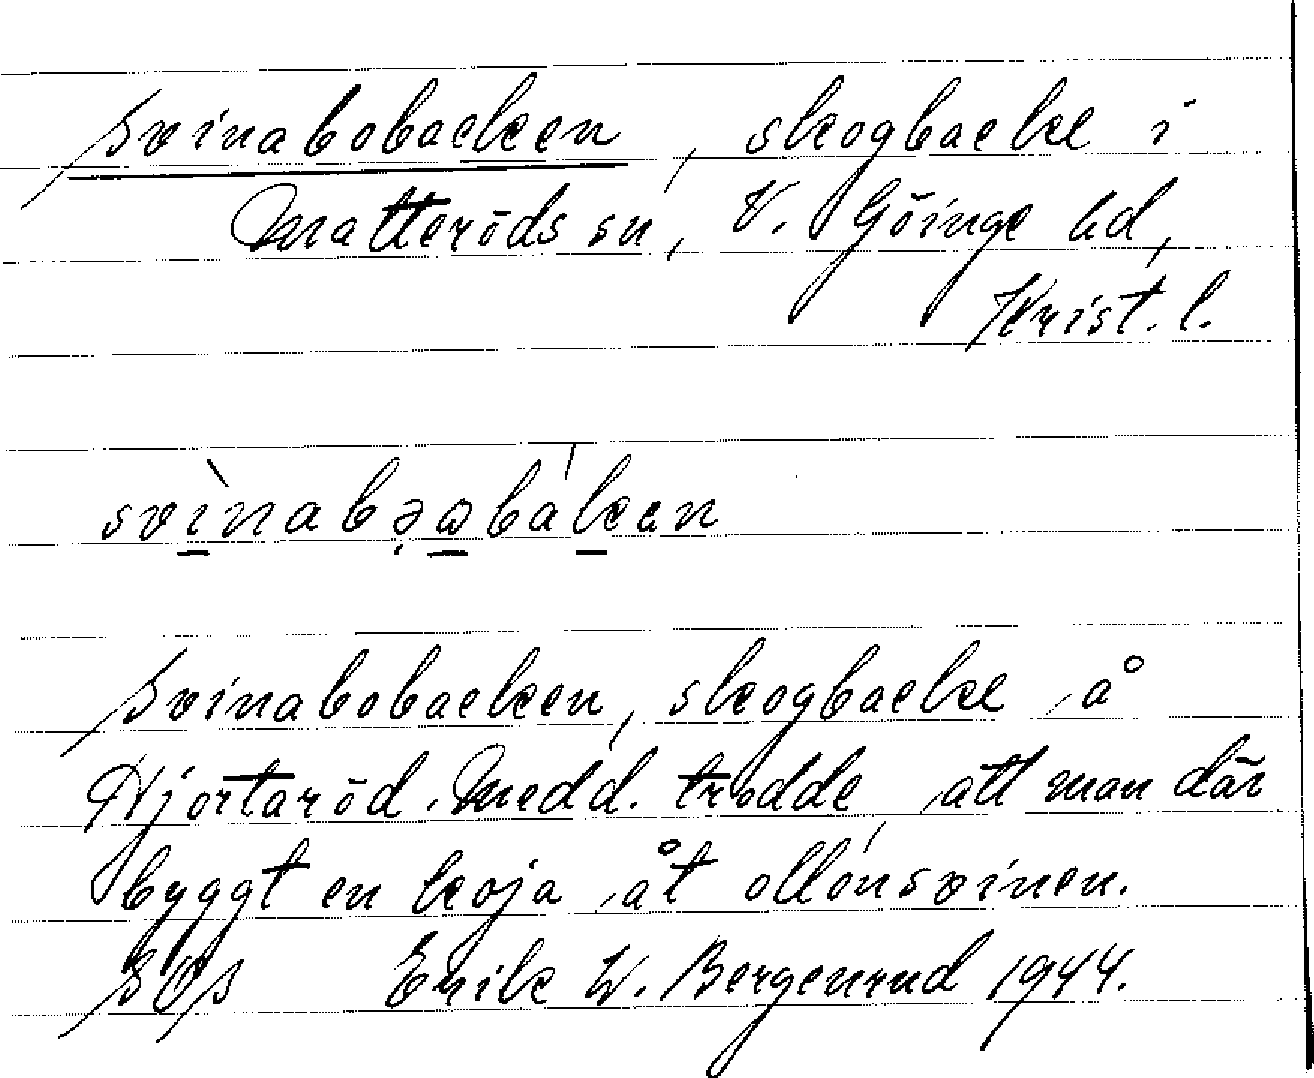 Svinabobacken, skogbacke i
Matteröds sn, V. Göinge hd,
Krist. l.
Svinabobacken, skogbacke å
Hjortaröd. Medd. trodde att man där
byggt en koja åt ollonsvinen.
Erik W. Bergenrud 1944.